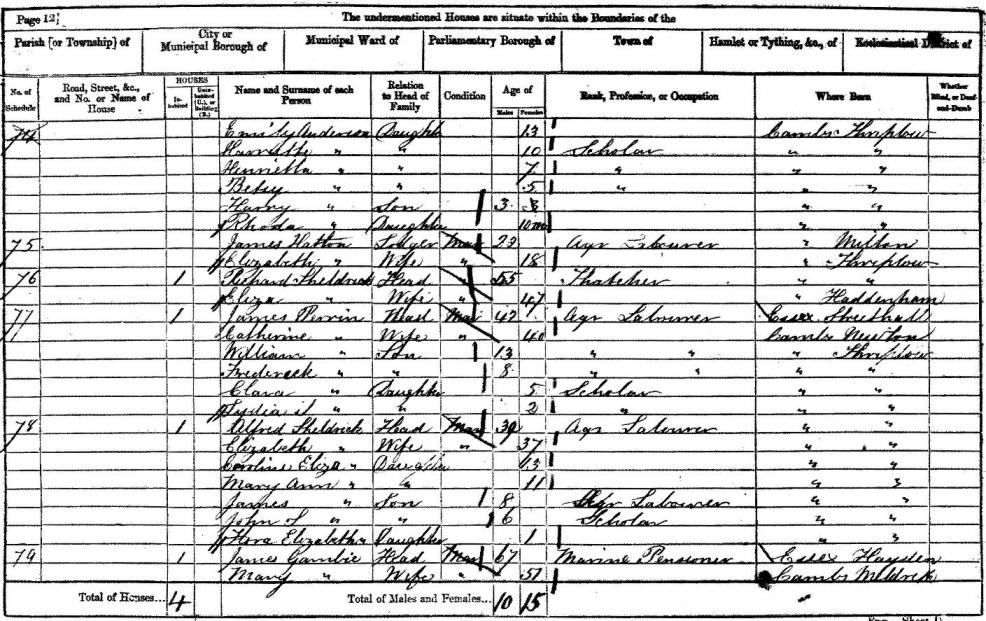 Page 12
The undermentioned Houses are situate within the Boundaries of the
Parish [or Township] of City or Municipal Borough of Municipal Ward of Parliamentary Borough of Town of Hamlet or Tything, &c., of Ecclesiastical District of
No. of Schedule Road, Street, &c., and No. or Name of House HOUSES Inhabited Uninhabited (U.), or Building (B.) Name and Surname of each Person Relation to Head of Family Condition Age of Males Females Rank, Profession, or Occupation Where Born Whether Blind, or Deaf-and-Dumb
74 Emily Anderson Daughter 13 Cambs Thriplow
Harriette " " 10 Scholar " "
Henrietta " " 7 " " "
Betsy " " 5 " " "
Harry " Son 3 " "
Rhoda " Daughter 10 mo " "
75 James Hatton Lodger Mar 23 Agr Labourer " Milton
Elizabeth " Wife " 18 " Thriplow
76 1 Richard Sheldrick Head " 55 Thatcher " "
Eliza " Wife " 47 " Haddenham
77 1 James Perrin Head Mar 42 Agr Labourer Essex Streethall
Catherine " Wife " 40 Cambs Newton
William " Son 13 " " " Thriplow
Frederick " " 8 " " " "
Clara " Daughter 5 Scholar " "
Lydia " " 2 " " "
78 1 Alfred Sheldrick Head Mar 39 Agr Labourer " "
Elizabeth " Wife " 37 " "
Caroline Eliza " Daughter 13 " "
Mary Ann " " 11 " "
James " Son 8 Agr Labourer " "
John S " " 6 Scholar " "
Flora Elizabeth " Daughter 1 " "
79 1 James Gambie Head Mar 67 Marine Pensioner Essex Haydon
Mary " Wife " 51 Cambs Meldreth
Total of Houses... 4 Total of Males and Females... 10 15